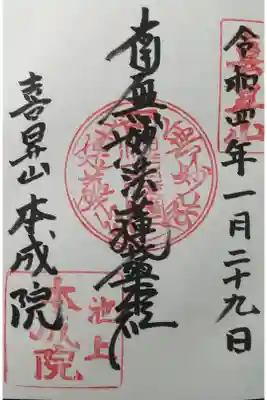 令和四年一月二十九日
南無妙法蓮華経
喜昇山 本成院
池上
本成院